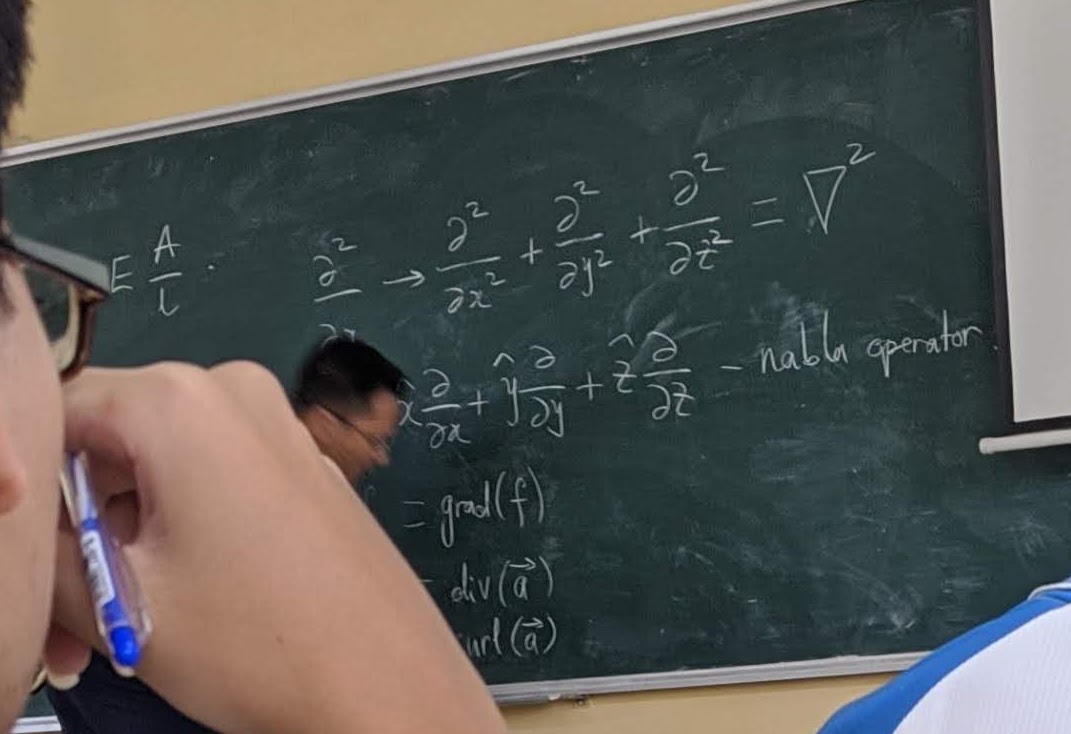 E A/l . ∂²/∂x → ∂²/∂x² + ∂²/∂y² + ∂²/∂z² = ∇²
x̂ ∂/∂x + ŷ ∂/∂y + ẑ ∂/∂z – nabla operator.
= grad(f)
= div(a⃗)
url(a⃗)